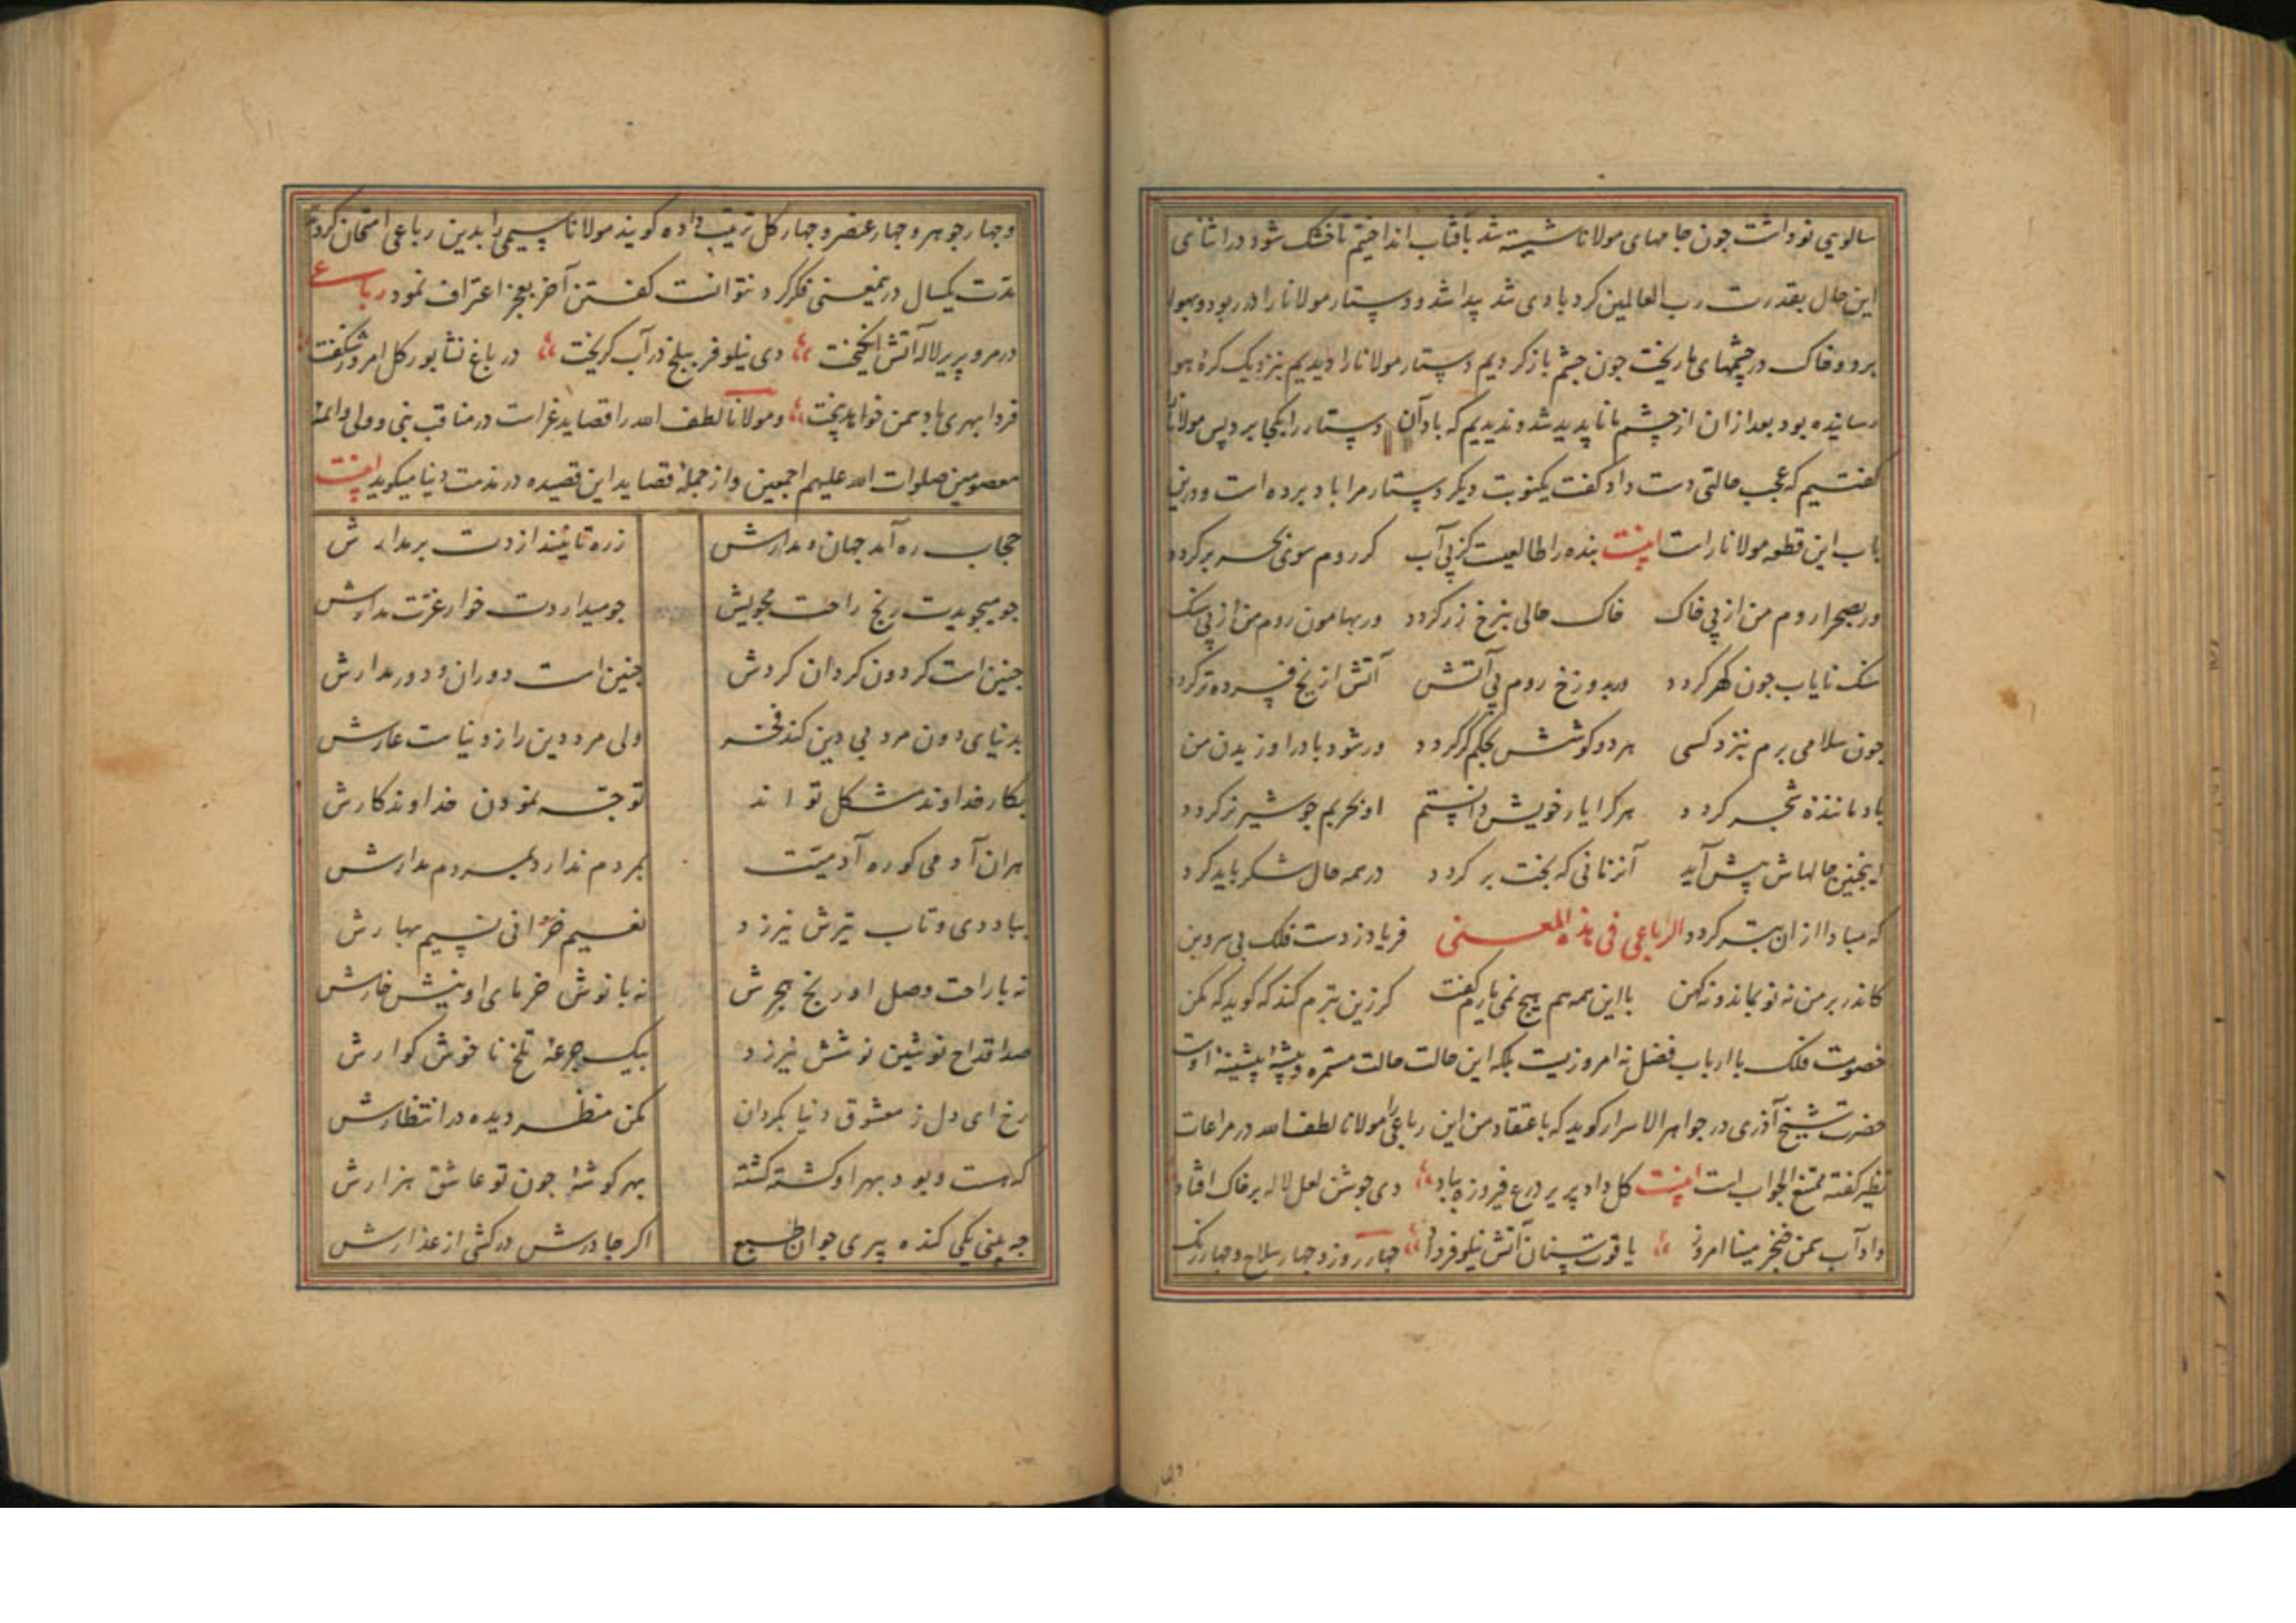 سالوی نو داشت چون جامهای مولانا شسته شد بآفتاب انداختیم تا خشک شود در اثنای
این حال بقدرت رب العالمین کردبادی شد پیدا شد و دستار مولانا را در ربود و بهوا
برد و خاک در چشمهای ما ریخت چون چشم باز کردیم دستار مولانا را دیدیم بنزدیک کرهٔ هوا
رسانیده بود بعد از ان از چشم ما ناپدید شد و ندیدیم که باد آن دستار را بکجا برد پس مولانا را
کفتیم که عجب حالتی دست داد کفت یکنوبت دیکر دستار مرا باد برده است و درین
باب این قطعه مولانا راست اینست بنده را طالعیست کز پی آب کر روم سوی بحر بر کردد
ور بصحرا روم من از پی خاک خاک حالی بنرخ زر کردد ور بهامون روم من از پی سنک
سنک نایاب چون کهر کردد ور بدوزخ روم پی آتش آتش از یخ فسرده تر کردد
چون سلامی برم بنزد کسی هر دو کوشش بحکم کر کردد ور شود باد را وزیدن من
باد مانندهٔ شجر کردد هر کرا یار خویش دانستم او بحربم چو شیر نر کردد
اینچنین حالهاش پیش آید آنزمانی که بخت بر کردد در همه حال شکر باید کرد
که مبادا از ان بتر کردد الرباعی فی هذه المعنی فریاد ز دست فلک بی سر و بن
کاندر بر من نه نو بماند و نه کهن با این همه هم هیچ نمی یارم کفت کر زین بترم کند که کوید که مکن
خصومت فلک با ارباب فضل نه امروزیست بلکه این حالت حالت مستمره و پیشهٔ پیشینهٔ اوست
حضرت شیخ آذری در جواهر الاسرار کوید که باعتقاد من این رباعی را مولانا لطف الله در مراعات
نظیر کفته ممتنع الجواب است اینست کل داد پریر درع فیروزه بباد دی جوش لعل لاله بر خاک افتاد
داد آب سمن خنجر مینا امروز یاقوت سنان آتش نیلوفر داد چهار روز و چهار سلاح و چهار رنک
و چهار جوهر و چهار عنصر و چهار کل ترتیب داده کویند مولانا سیمی را بدین رباعی امتحان کردند
مدت یکسال در ینمعنی فکر کرد نتوانست کفتن آخر بعجز اعتراف نمود رباعی
در مرو پریر لاله آتش انکیخت دی نیلوفر ببلخ در آب کریخت در باغ نشابور کل امروز شکفت
فردا بهری باد سمن خواهد بیخت و مولانا لطف الله را قصاید غراست در مناقب نبی و ولی و ائمهٔ
معصومین صلوات الله علیهم اجمعین و از جملهٔ قصاید این قصیده در مذمت دنیا میکوید اینست
حجاب ره آمد جهان و مدارش ز ره تا نیندازدت بر مدارش
چو میجویدت رنج راحت مجویش چو میداردت خوار عزت مدارش
چنین است کردون کردان کردش چنین است دوران و دور مدارش
بدنیای دون مرد بی دین کند فخر ولی مرد دین را ز دنیاست عارش
بکار خداوند مشکل تواند توجه نمودن خداوند کارش
هر ان آدمی کو ره آدمیت بمردم ندارد بمردم مدارش
بباد دی و تاب تیرش نیرزد نعیم خزانی نسیم بهارش
نه با راحت وصل او رنج هجرش نه با نوش خرمای او نیش خارش
صد اقداح نوشین نوشش نیرزد بیک جرعهٔ تلخ نا خوش کوارش
رخ ای دل ز معشوق دنیا بکردان مکن منظر دیده در انتظارش
که هست و بود بهر او کشته کشته بهر کوشهٔ چون تو عاشق هزارش
چه بینی یکی کنده پیری جوان طبع اکر چادرش در کشی از عذارش